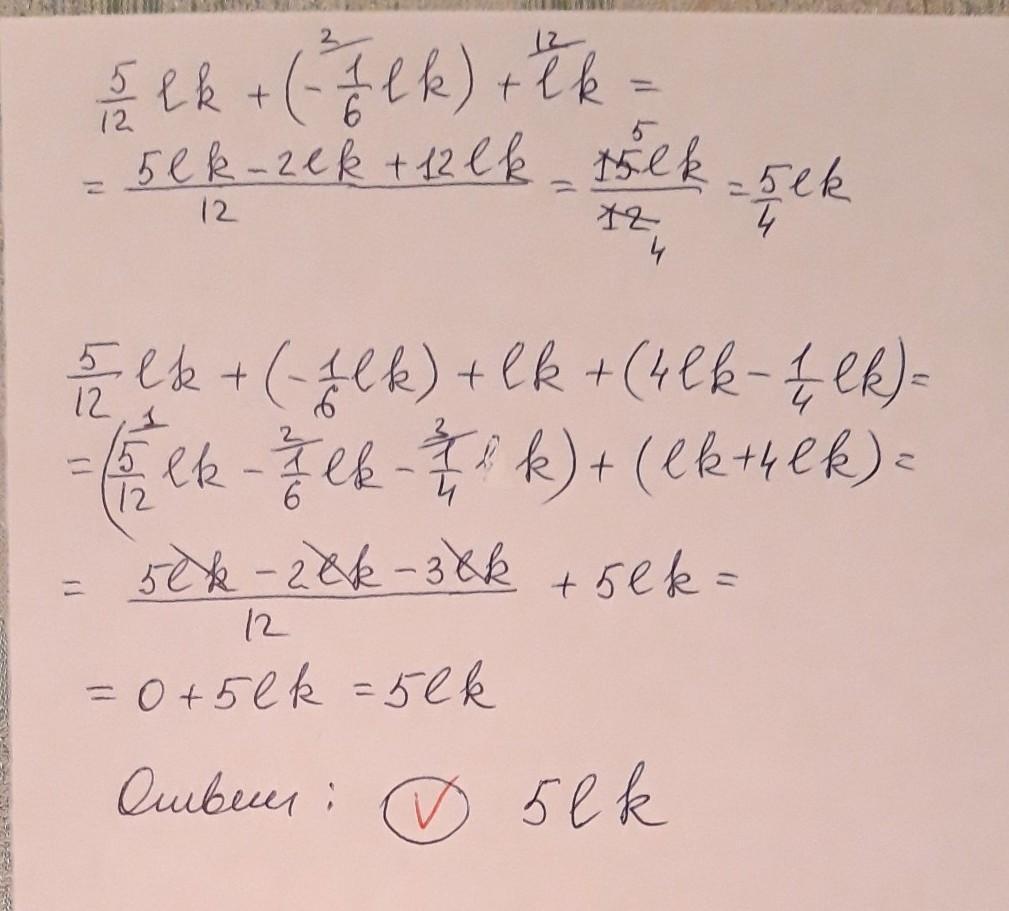 5/12 lk + (-1/6 lk) + lk =
= (5lk - 2lk + 12lk)/12 = 15lk/12 = 5/4 lk
5/12 lk + (-1/6 lk) + lk + (4lk - 1/4 lk) =
= (5/12 lk - 1/6 lk - 1/4 lk) + (lk + 4lk) =
= (5lk - 2lk - 3lk)/12 + 5lk =
= 0 + 5lk = 5lk
Ответ: V 5lk